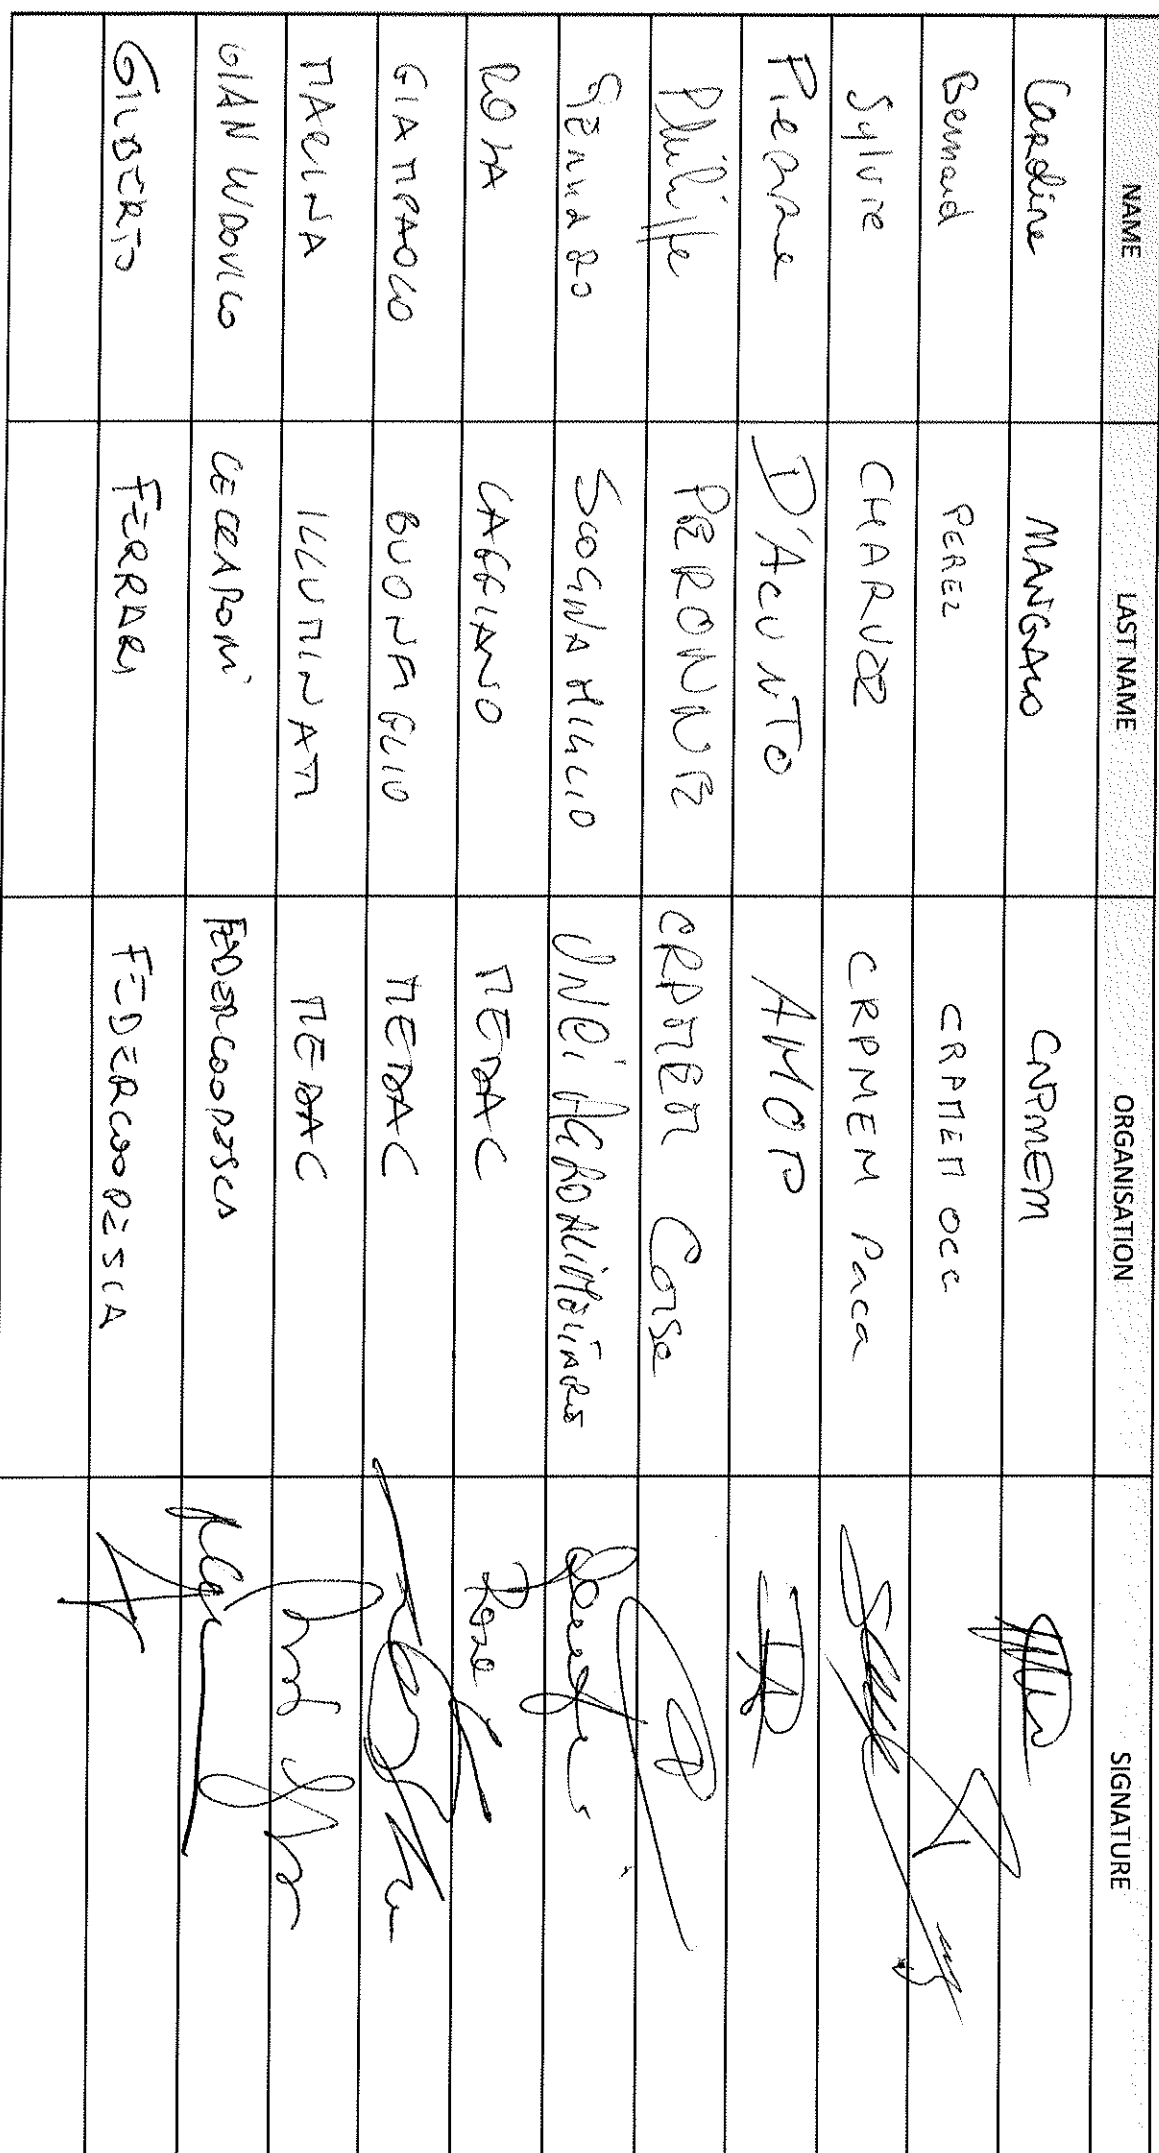 NAME LAST NAME ORGANISATION SIGNATURE
Caroline MANGALO CNPMEM
Bernard PEREZ CRPMEM OCC
Sylvie CHARVOZ CRPMEM Paca
Pierre D'ACUNTO AMOP
Philippe PERONNE CRPMEM Corse
GENNARO SCOGNAMIGLIO UNCI AGROALIMENTARE
ROSA CAGGIANO MEDAC
GIAMPAOLO BUONFIGLIO MEDAC
MARINA ILLUMINATI MEDAC
GIAN LUDOVICO CECCARONI FEDERCOOPESCA
GILBERTO FERRARI FEDERCOOPESCA